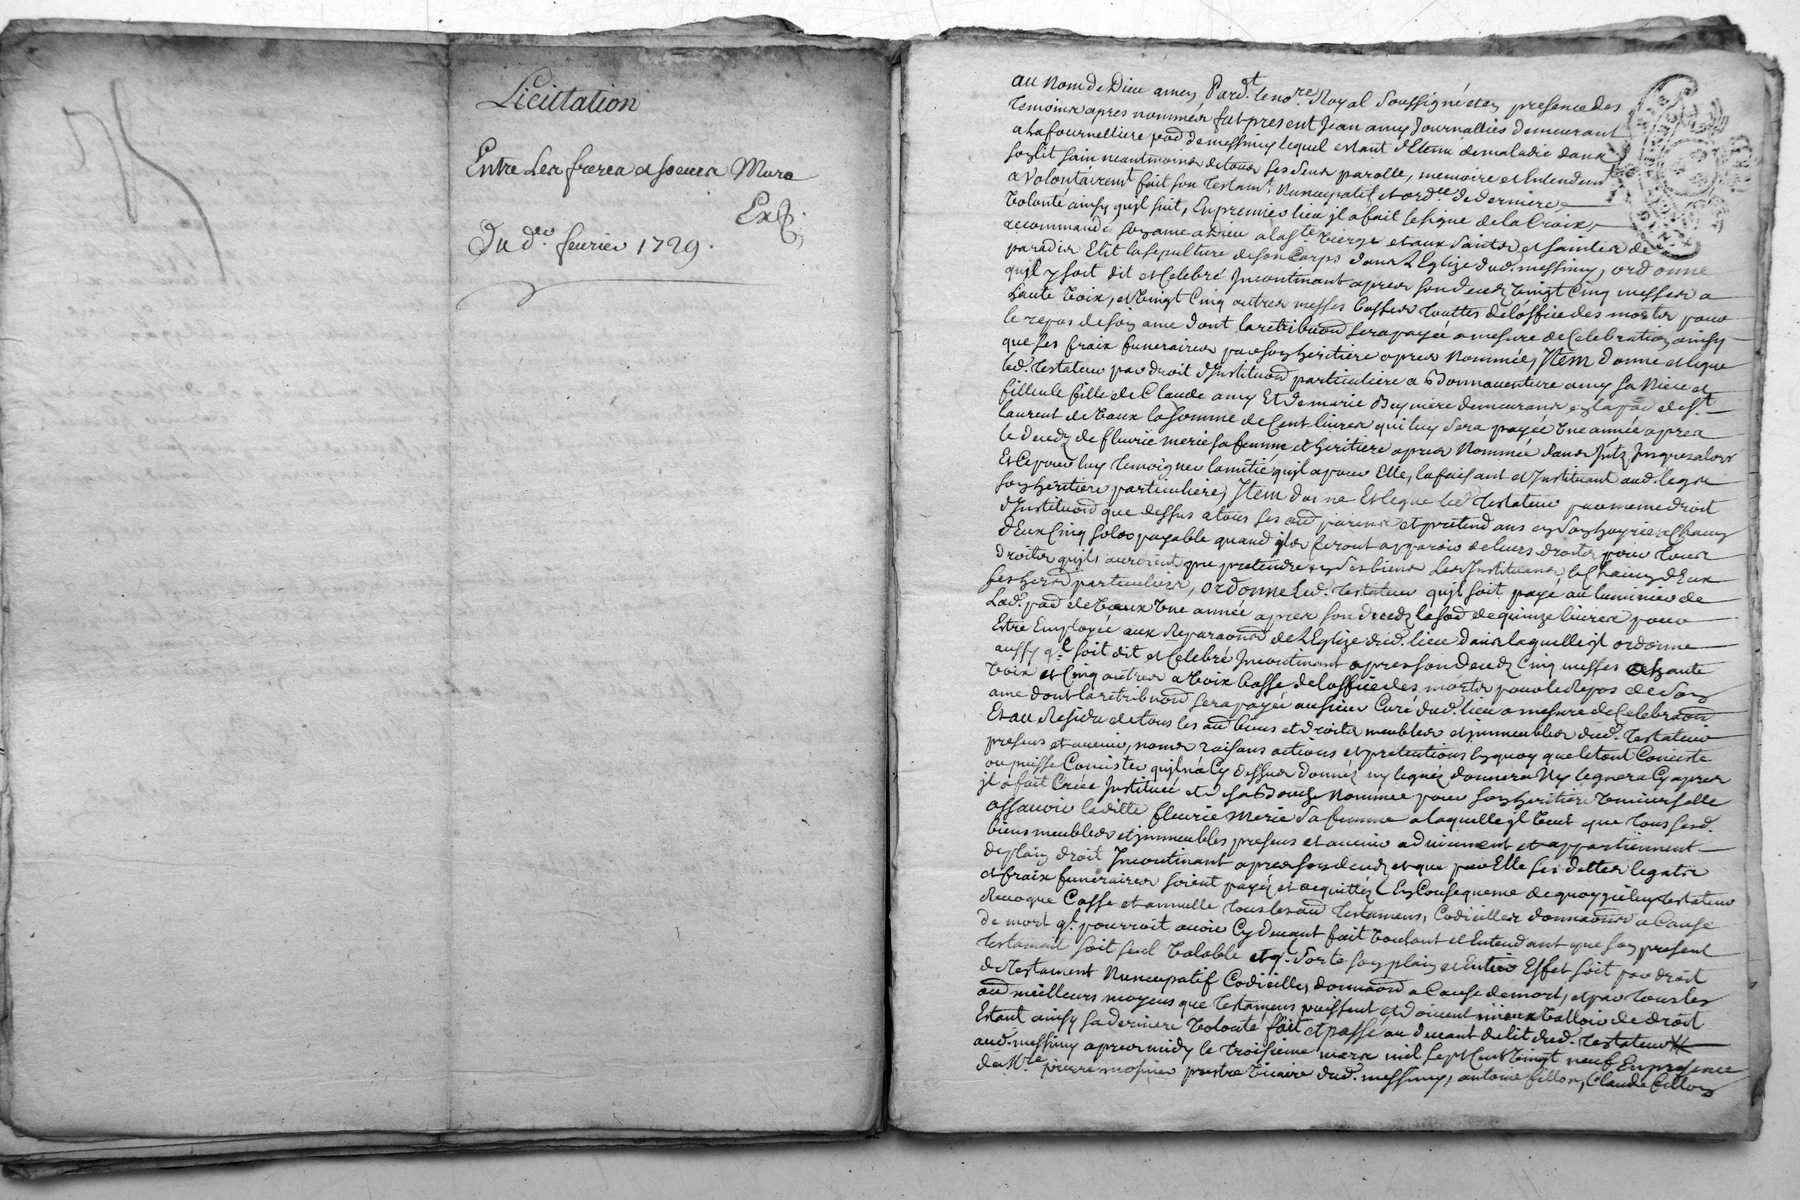 Licittation
Entre Les freres et soeurs Mure
Exp.
Du d.er fevrier 1729.
au Nom de Dieu amen Pard.t le no.re Royal soussigné et en presence des
temoins apres nommés fut present Jean amy Journallier demeurant
a La fournelliere parr de messimy lequel estant detenu de maladie dans
son lit sain neantmoins de tous ses sens parolle, memoire et Entendem.t
a Volontairem.t fait son testam.t Nuncupatif et ord.re de derniere
Volonté ainsy quil suit, En premier lieu jl a fait le signe de la Croix,
recommandé son ame a Dieu a la ste Vierge et aux saints et saintes de
paradis Elit la sepulture de son Corps dans L'Eglize dud. messimy, ordonne
quil y soit dit et Celebré Jncontinant apres son deceds vingt Cinq messes a
haute Voix, et Vingt Cinq autres messes basses touttes de loffice des morts pour
le repos de son ame dont la retribuon sera payée a mesure de Celebration ainsy
que ses fraix funeraires par son heritiere apres Nommée, Jtem donne et legue
led. testateur par droit d'Jnstituon particuliere a Bonnaventure amy sa Niece et
filleule fille de Claude amy Et de marie Buyniere demeurans en la parr de st
laurent de Vaux la somme de Cent livres qui luy sera payée Une année apres
le deceds de fleurie merie sa femme et heritiere apres Nommée sans Jntz Jusques alors
Et Ce pour luy temoigner lamitié quil a pour Elle, la faisant et Jnstituant aud. legs
son heritiere particuliere, Jtem donne Et legue led. testateur par meme droit
d'Jnstituon que dessus a tous ses au parens et pretendans en son hoyrie a Chacun
d'Eux Cinq sols payable quand jls feront apparoir de leurs droits pour tous
droits quils auroient pu pretendre en ses biens Les Jnstituant Chacun d'Eux
ses hers particuliers, ordonne led. testateur quil soit payé au luminier de
Lad. parr de Vaux Une année apres son deceds la so de quinze livres pour
Estre Employée aux Reparaons de L'Eglize dud. lieu dans laquelle jl ordonne
aussy q.l soit dit et Celebré Jncontinant apres son deceds Cinq messes a haute
Voix et Cinq autres a Voix basse de loffice des morts pour le Repos de son
ame dont la retribuon sera payée au sieur Curé dud. lieu a mesure de Celebraon
Et au Residu de tous les au biens et droits meubles et jmmeubles dud. testateur
presens et avenir, noms raisons actions et pretentions en quoy que le tout Consiste
ou puisse Consister quil n'a Cy dessus donnés ny legués donnera Ny leguera Cy apres
jl a fait Créée Jnstituée et de sa Bouche Nommée pour son heritiere Universelle
assavoir laditte fleurie Merie sa femme a laquelle jl Veut que tous sesd.
biens meubles et jmmeubles presens et avenir adviennent et appartiennent
de plain droit Jncontinant apres son deceds et que par Elle ses dettes legats
et fraix funeraires soient payés et acquittés En Consequence de quoy icelluy testateur
Revoque Casse et annulle tous les au testamens, Codicilles donnaons a Cause
de mort q.l pourroit avoir Cy Devant fait Voulant et Entendant que son present
testament soit seul Valable et q.l sorte son plain et Entier Effet soit par droit
de testament Nuncupatif Codicille, donnaon a Cause de mort, et par tous les
au meilleurs moyens que testamens puissent et doivent mieux Valloir de droit
Estant ainsy sa derniere Volonté fait et passé au devant du lit dud. testateur
aud. messimy apres midy le troisieme mars mil sept Cent Vingt neuf En presence
de M.re pierre mosnier prestre Vicaire dud. messimy, antoine fillon, Claude fillon